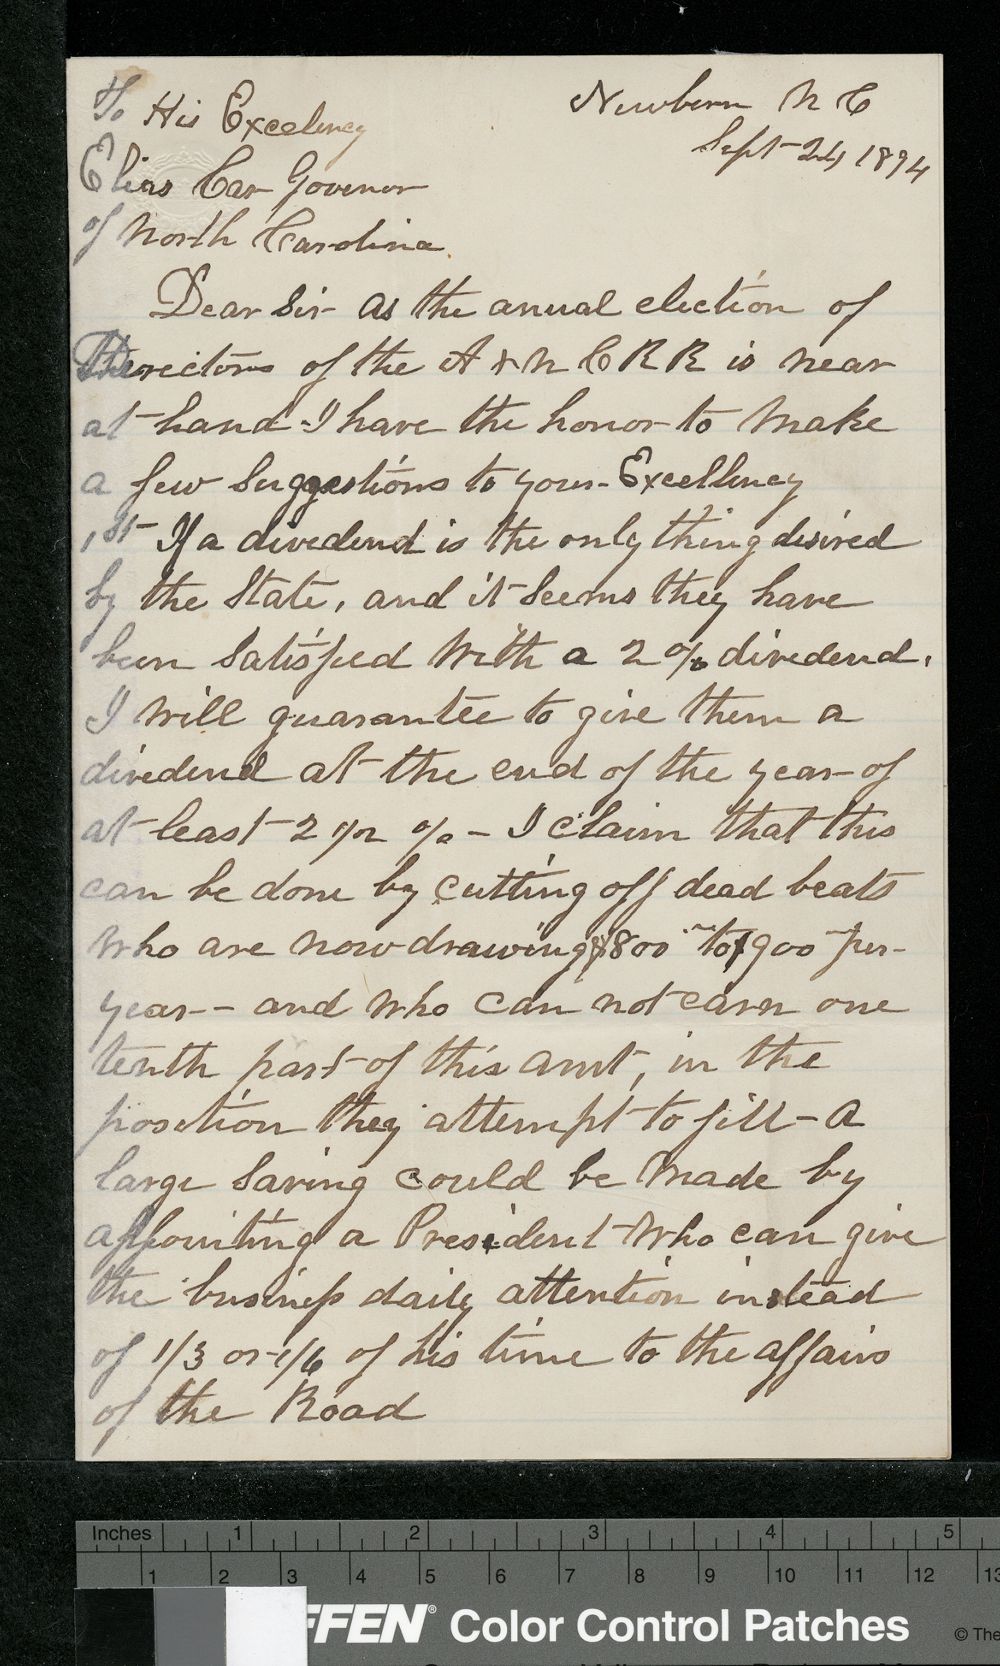 Newbern N C
Sept 24 1894
To His Excelency
Elias Car Govenor
of North Carolina.
Dear Sir As the anual election of
Directors of the A & N C R R is near
at hand - I have the honor to Make
a few Suggestions to your Excellency
1st If a dividend is the only thing desired
by the State, and it Seems they have
been Satisfied With a 2 % dividend.
I Will guarantee to give them a
dividend at the end of the year of
at least 2 1/2 % - I claim that this
can be done by cutting off dead beats
Who are now drawing $800 to $900 per
year - and Who can not earn one
tenth part of this amt, in the
position they attempt to fill - A
large Saving could be Made by
appointing a President Who can give
the business daily attention instead
of 1/3 or 1/6 of his time to the affairs
of the Road
Inches 1 2 3 4 5
1 2 3 4 5 6 7 8 9 10 11 12 13
FFEN® Color Control Patches © The